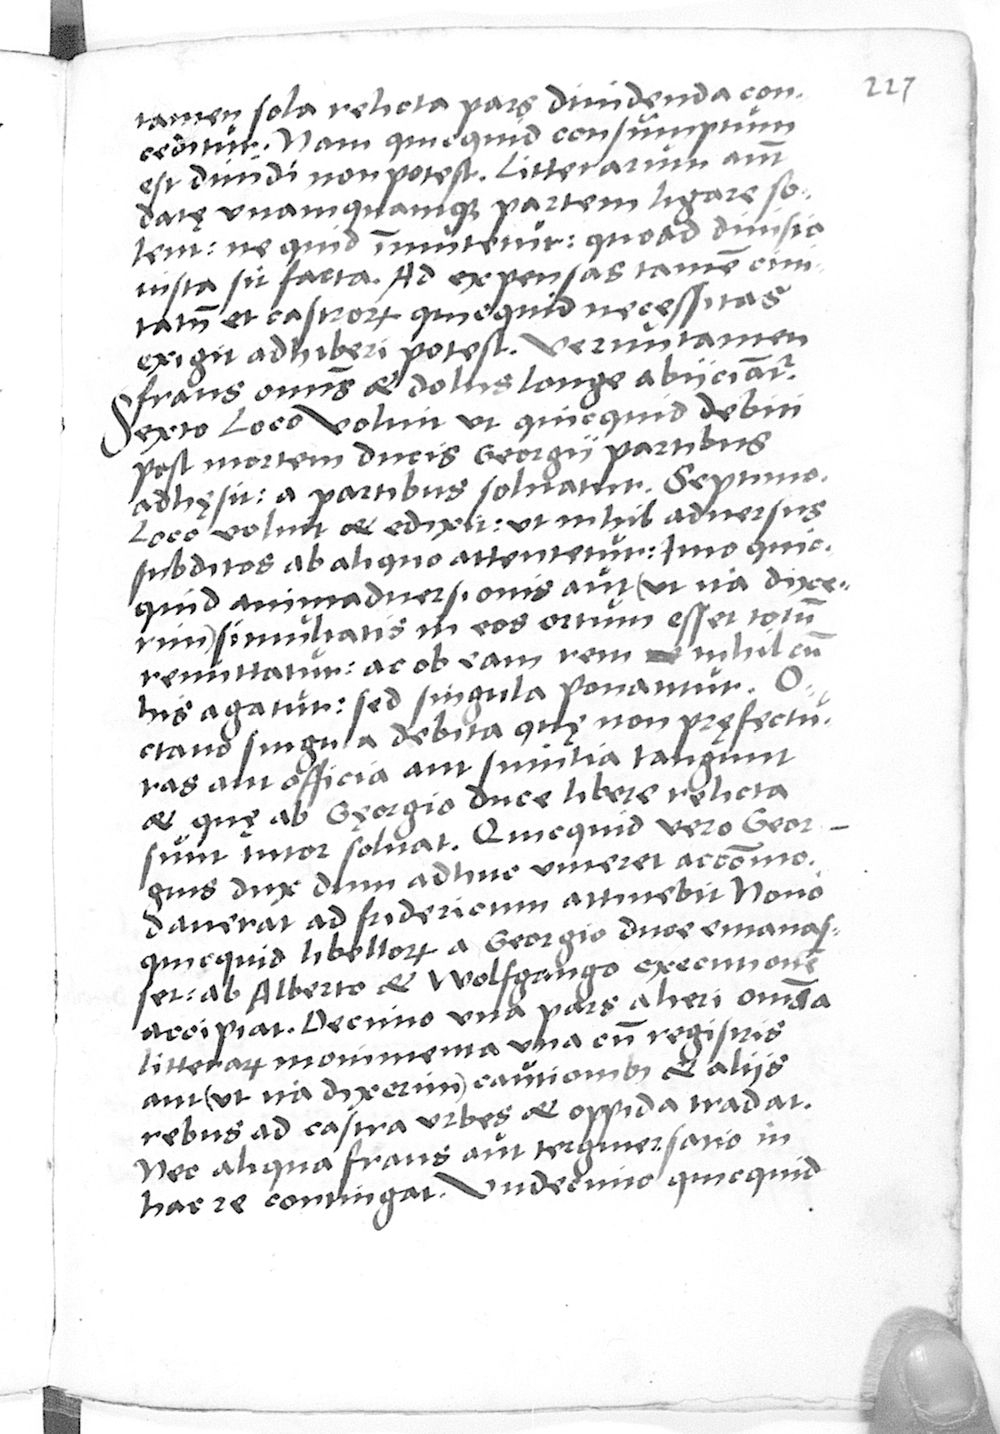 227
tamen sola relicta pars diuidenda con-
ceditur. Nam quicquid consumptum
est diuidi non potest. Litterarum aūt
datę vnamquamque partem ligare so-
lent: ne quid īmutetur: quoad diuisio
iusta sit facta. Ad expensas tamē ciui-
tatū et castrorꝝ quicquid necessitas
exigit adhiberi potest. Veruntamen
fraus omīs & dolus longe abijciāt᷑.
Sexto Loco Voluit vt quicquid debiti
post mortem ducis Georgij partibus
adhęsit: a partibus soluatur. Septimo.
Loco voluit & edixit: vt nihil aduersus
subditos ab aliquo attentetur: Imo quic-
quid animaduersionis aut (vt ita dixe-
rim) simultatis in eos ortum esset totū
remittatur: ac ob eam rem nihil cū
his agatur: sed singula ponantur. O-
ctauo singula debita quę non pręfectu-
ras aut officia aut similia tangunt
& quę ab Gęorgio duce libere relicta
sunt tutor soluat. Quicquid vero Geor-
gius dux dum adhuc viueret accōmo-
dauerat ad fridericum attinebit Nono
quicquid libellorꝝ a Georgio duce emanas-
set: ab Alberto & Wolfgango executionē
accipiat. Decimo vna pars alteri omīa
litterarꝝ monimenta vna cū registris
aut (vt ita dixerim) cautionibꝫ & alijs
rebus ad castra vrbes & oppida tradat.
Nec aliqua fraus aut tergiuersatio in
hac re contingat. Vndecimo quicquid